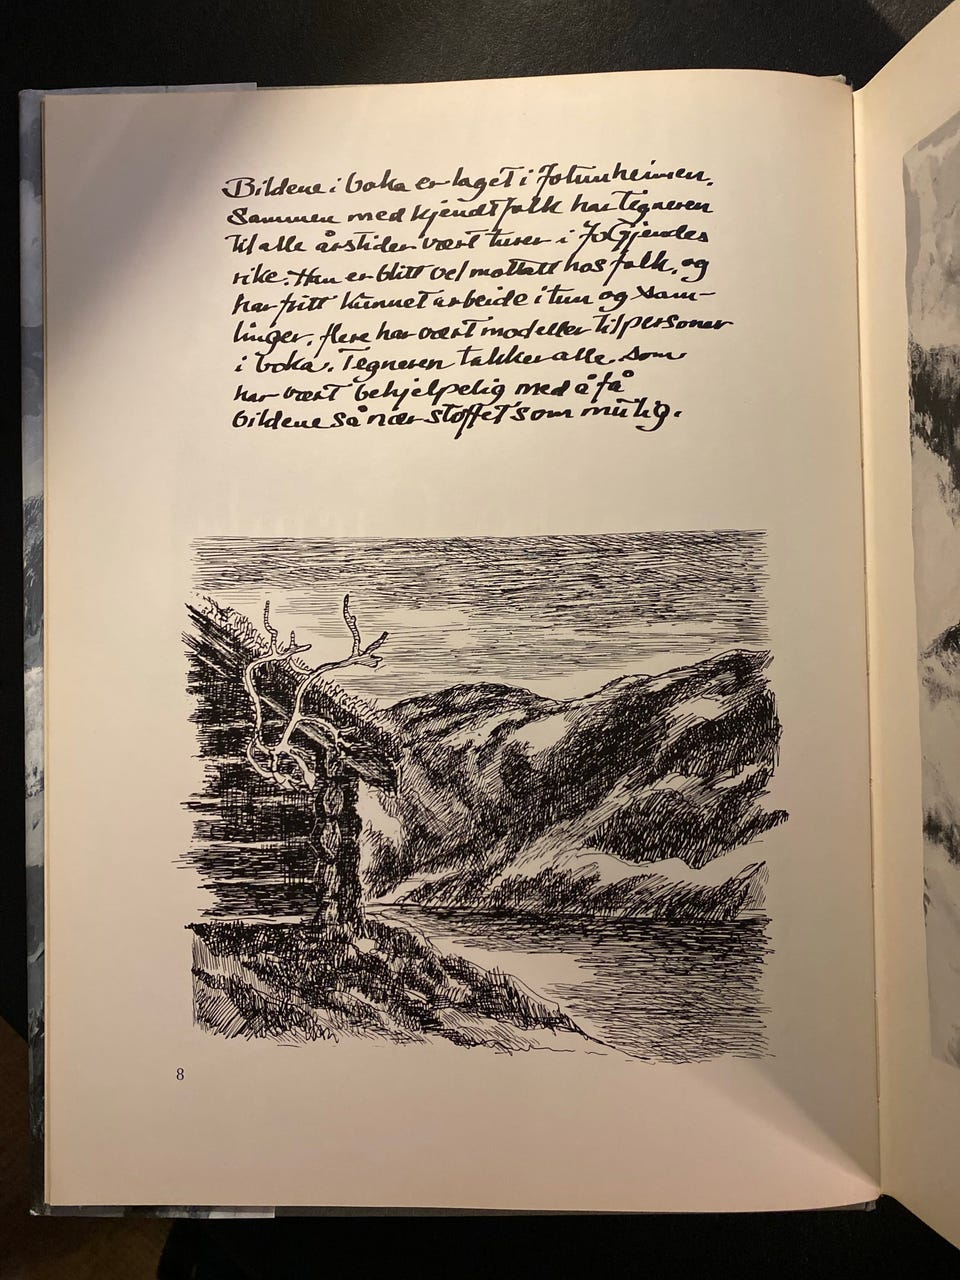 Bildene i boka er laget i Jotunheimen.
Sammen med kjendtfolk har tegneren
til alle årstider vært turer i Jo Gjendes
rike. Han er blitt vel mottatt hos folk, og
har fritt kunnet arbeide i tun og sam-
linger. Flere har vært modeller til personer
i boka. Tegneren takker alle, som
har vært behjelpelig med å få
bildene så nær stoffet som mulig.
8